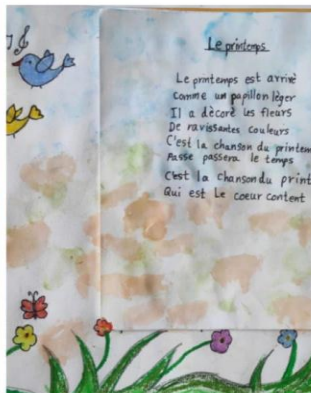 Le printemps
Le printemps est arrivé
Comme un papillon lèger
Il a dècorè les fleurs
De ravissantes couleurs
C'est la chanson du printem
Passe passera le temps
C'est la chanson du print
Qui est Le coeur content